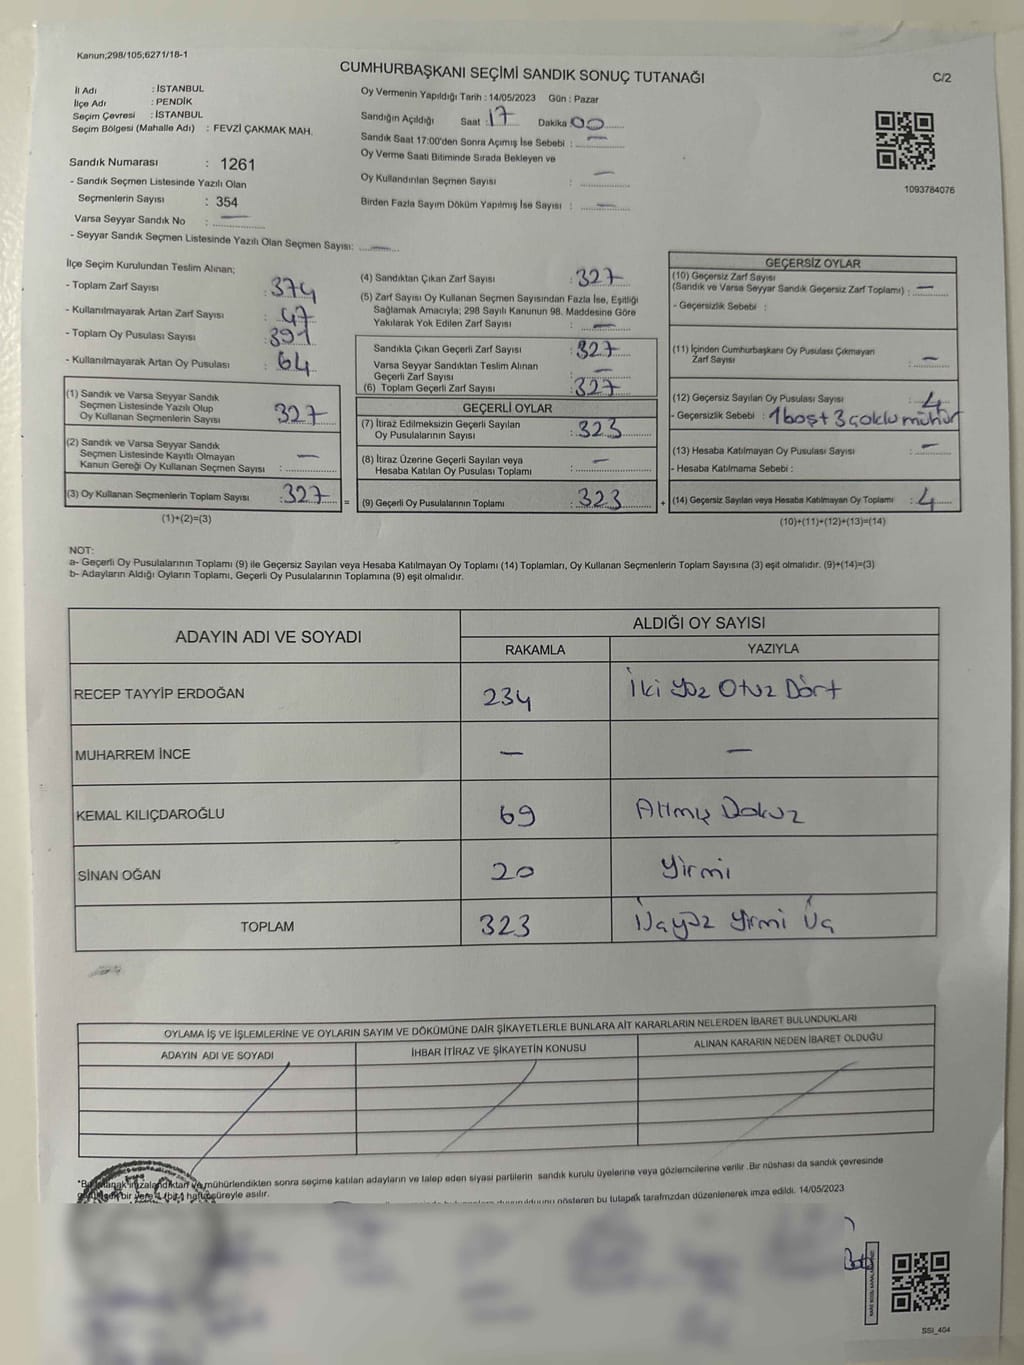 Kanun;298/105;6271/18-1
CUMHURBAŞKANI SEÇİMİ SANDIK SONUÇ TUTANAĞI
C/2
İl Adı : İSTANBUL
İlçe Adı : PENDİK
Seçim Çevresi : İSTANBUL
Seçim Bölgesi (Mahalle Adı) : FEVZİ ÇAKMAK MAH.
Sandık Numarası : 1261
- Sandık Seçmen Listesinde Yazılı Olan
Seçmenlerin Sayısı : 354
Varsa Seyyar Sandık No : —
- Seyyar Sandık Seçmen Listesinde Yazılı Olan Seçmen Sayısı: —
Oy Vermenin Yapıldığı Tarih : 14/05/2023 Gün : Pazar
Sandığın Açıldığı Saat : 17 Dakika 00
Sandık Saat 17:00'den Sonra Açımış İse Sebebi : —
Oy Verme Saati Bitiminde Sırada Bekleyen ve
Oy Kullandırılan Seçmen Sayısı : —
Birden Fazla Sayım Döküm Yapılmış İse Sayısı : —
1093784076
İlçe Seçim Kurulundan Teslim Alınan;
- Toplam Zarf Sayısı : 374
- Kullanılmayarak Artan Zarf Sayısı : 47
- Toplam Oy Pusulası Sayısı : 391
- Kullanılmayarak Artan Oy Pusulası : 64
(1) Sandık ve Varsa Seyyar Sandık
Seçmen Listesinde Yazılı Olup
Oy Kullanan Seçmenlerin Sayısı : 327
(2) Sandık ve Varsa Seyyar Sandık
Seçmen Listesinde Kayıtlı Olmayan
Kanun Gereği Oy Kullanan Seçmen Sayısı : —
(3) Oy Kullanan Seçmenlerin Toplam Sayısı : 327 =
(1)+(2)=(3)
(4) Sandıktan Çıkan Zarf Sayısı : 327
(5) Zarf Sayısı Oy Kullanan Seçmen Sayısından Fazla İse, Eşitliği
Sağlamak Amacıyla; 298 Sayılı Kanunun 98. Maddesine Göre
Yakılarak Yok Edilen Zarf Sayısı : —
Sandıkta Çıkan Geçerli Zarf Sayısı : 327
Varsa Seyyar Sandıktan Teslim Alınan
Geçerli Zarf Sayısı : —
(6) Toplam Geçerli Zarf Sayısı : 327
GEÇERLİ OYLAR
(7) İtiraz Edilmeksizin Geçerli Sayılan
Oy Pusulalarının Sayısı : 323
(8) İtiraz Üzerine Geçerli Sayılan veya
Hesaba Katılan Oy Pusulası Toplamı : —
(9) Geçerli Oy Pusulalarının Toplamı : 323 +
GEÇERSİZ OYLAR
(10) Geçersiz Zarf Sayısı
(Sandık ve Varsa Seyyar Sandık Geçersiz Zarf Toplamı) : —
- Geçersizlik Sebebi :
(11) İçinden Cumhurbaşkanı Oy Pusulası Çıkmayan
Zarf Sayısı : —
(12) Geçersiz Sayılan Oy Pusulası Sayısı : 4
- Geçersizlik Sebebi : 1 boş + 3 çoklu mühür
(13) Hesaba Katılmayan Oy Pusulası Sayısı : —
- Hesaba Katılmama Sebebi :
(14) Geçersiz Sayılan veya Hesaba Katılmayan Oy Toplamı : 4
(10)+(11)+(12)+(13)=(14)
NOT:
a- Geçerli Oy Pusulalarının Toplamı (9) ile Geçersiz Sayılan veya Hesaba Katılmayan Oy Toplamı (14) Toplamları, Oy Kullanan Seçmenlerin Toplam Sayısına (3) eşit olmalıdır. (9)+(14)=(3)
b- Adayların Aldığı Oyların Toplamı, Geçerli Oy Pusulalarının Toplamına (9) eşit olmalıdır.
ADAYIN ADI VE SOYADI
ALDIĞI OY SAYISI
RAKAMLA YAZIYLA
RECEP TAYYİP ERDOĞAN 234 İki Yüz Otuz Dört
MUHARREM İNCE — —
KEMAL KILIÇDAROĞLU 69 Altmış Dokuz
SİNAN OĞAN 20 Yirmi
TOPLAM 323 Üçyüz Yirmi Üç
OYLAMA İŞ VE İŞLEMLERİNE VE OYLARIN SAYIM VE DÖKÜMÜNE DAİR ŞİKAYETLERLE BUNLARA AİT KARARLARIN NELERDEN İBARET BULUNDUKLARI
ADAYIN ADI VE SOYADI İHBAR İTİRAZ VE ŞİKAYETİN KONUSU ALINAN KARARIN NEDEN İBARET OLDUĞU
mühürlendikten sonra seçime katılan adayların ve talep eden siyasi partilerin sandık kurulu üyelerine veya gözlemcilerine verilir .Bir nüshası da sandık çevresinde
bir yere 1 (bir) hafta süreyle asılır.
gösteren bu tutanak tarafımızdan düzenlenerek imza edildi. 14/05/2023
SSI_404